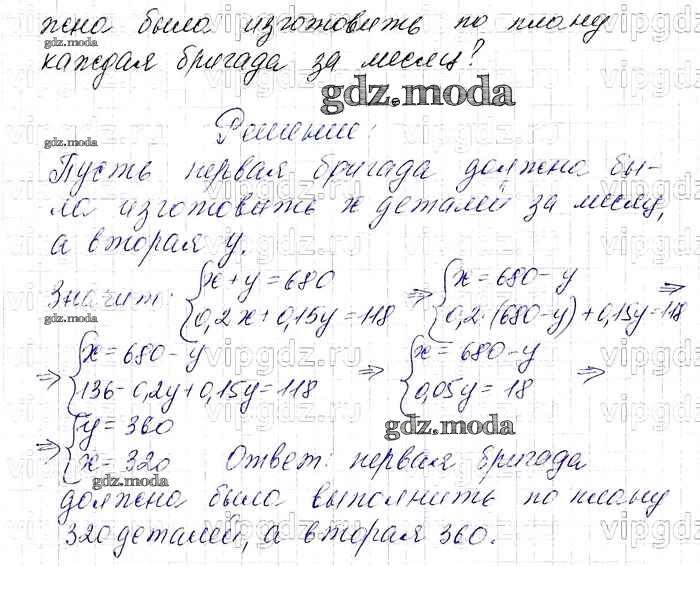 жно было изготовить по плану
каждая бригада за месяц?
gdz.moda
Решение:
Пусть первая бригада должна бы-
ла изготовить x деталей за месяц,
а вторая y.
Значит: {x + y = 680 => {x = 680 - y =>
{0,2x + 0,15y = 118 {0,2·(680-y) + 0,15y = 118
=> {x = 680 - y => {x = 680 - y =>
{136 - 0,2y + 0,15y = 118 {0,05y = 18
=> {y = 360
{x = 320 Ответ: первая бригада
должна была выполнить по плану
320 деталей, а вторая 360.